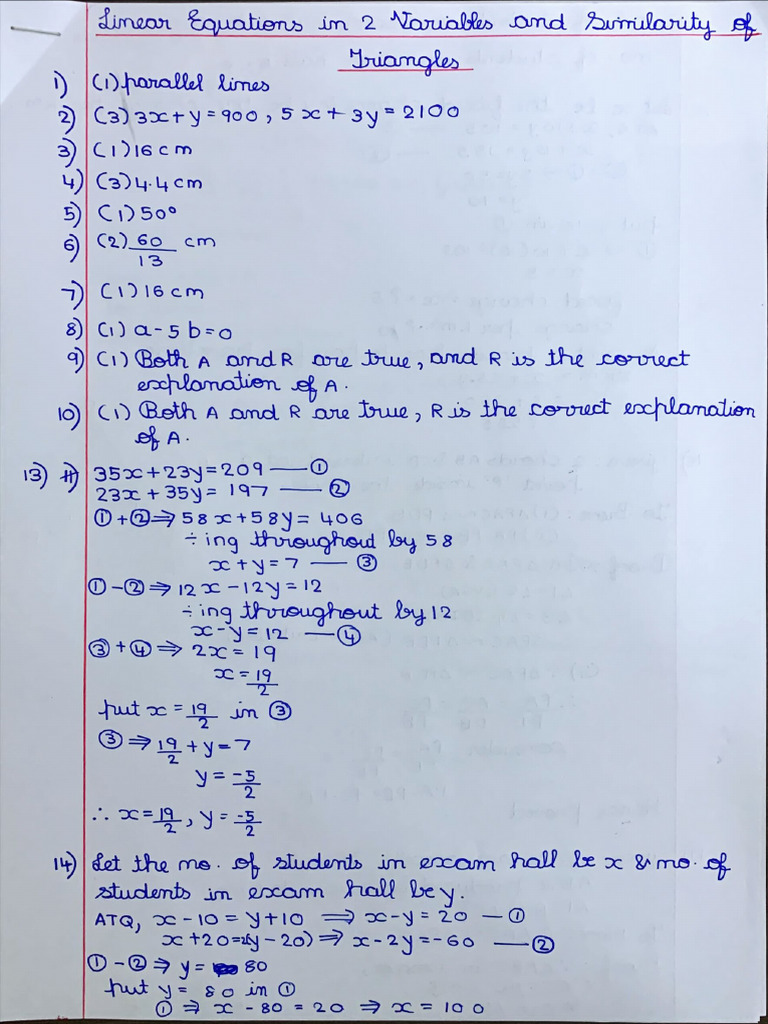 Linear Equations in 2 Variables and Similarity of
Triangles
1) (1) parallel lines
2) (3) 3x + y = 900, 5x + 3y = 2100
3) (1) 16 cm
4) (3) 4.4 cm
5) (1) 50°
6) (2) 60/13 cm
7) (1) 16 cm
8) (1) a - 5b = 0
9) (1) Both A and R are true, and R is the correct
explanation of A.
10) (1) Both A and R are true, R is the correct explanation
of A.
13) 35x + 23y = 209 — ①
23x + 35y = 197 — ②
① + ② ⇒ 58x + 58y = 406
÷ing throughout by 58
x + y = 7 — ③
① - ② ⇒ 12x - 12y = 12
÷ing throughout by 12
x - y = 12 — ④
③ + ④ ⇒ 2x = 19
x = 19/2
put x = 19/2 in ③
③ ⇒ 19/2 + y = 7
y = -5/2
∴ x = 19/2, y = -5/2
14) Let the no. of students in exam hall be x & no. of
students in exam hall be y.
ATQ, x - 10 = y + 10 ⟹ x - y = 20 — ①
x + 20 = 2(y - 20) ⇒ x - 2y = -60 — ②
① - ② ⇒ y = 80
put y = 80 in ①
① ⇒ x - 80 = 20 ⇒ x = 100